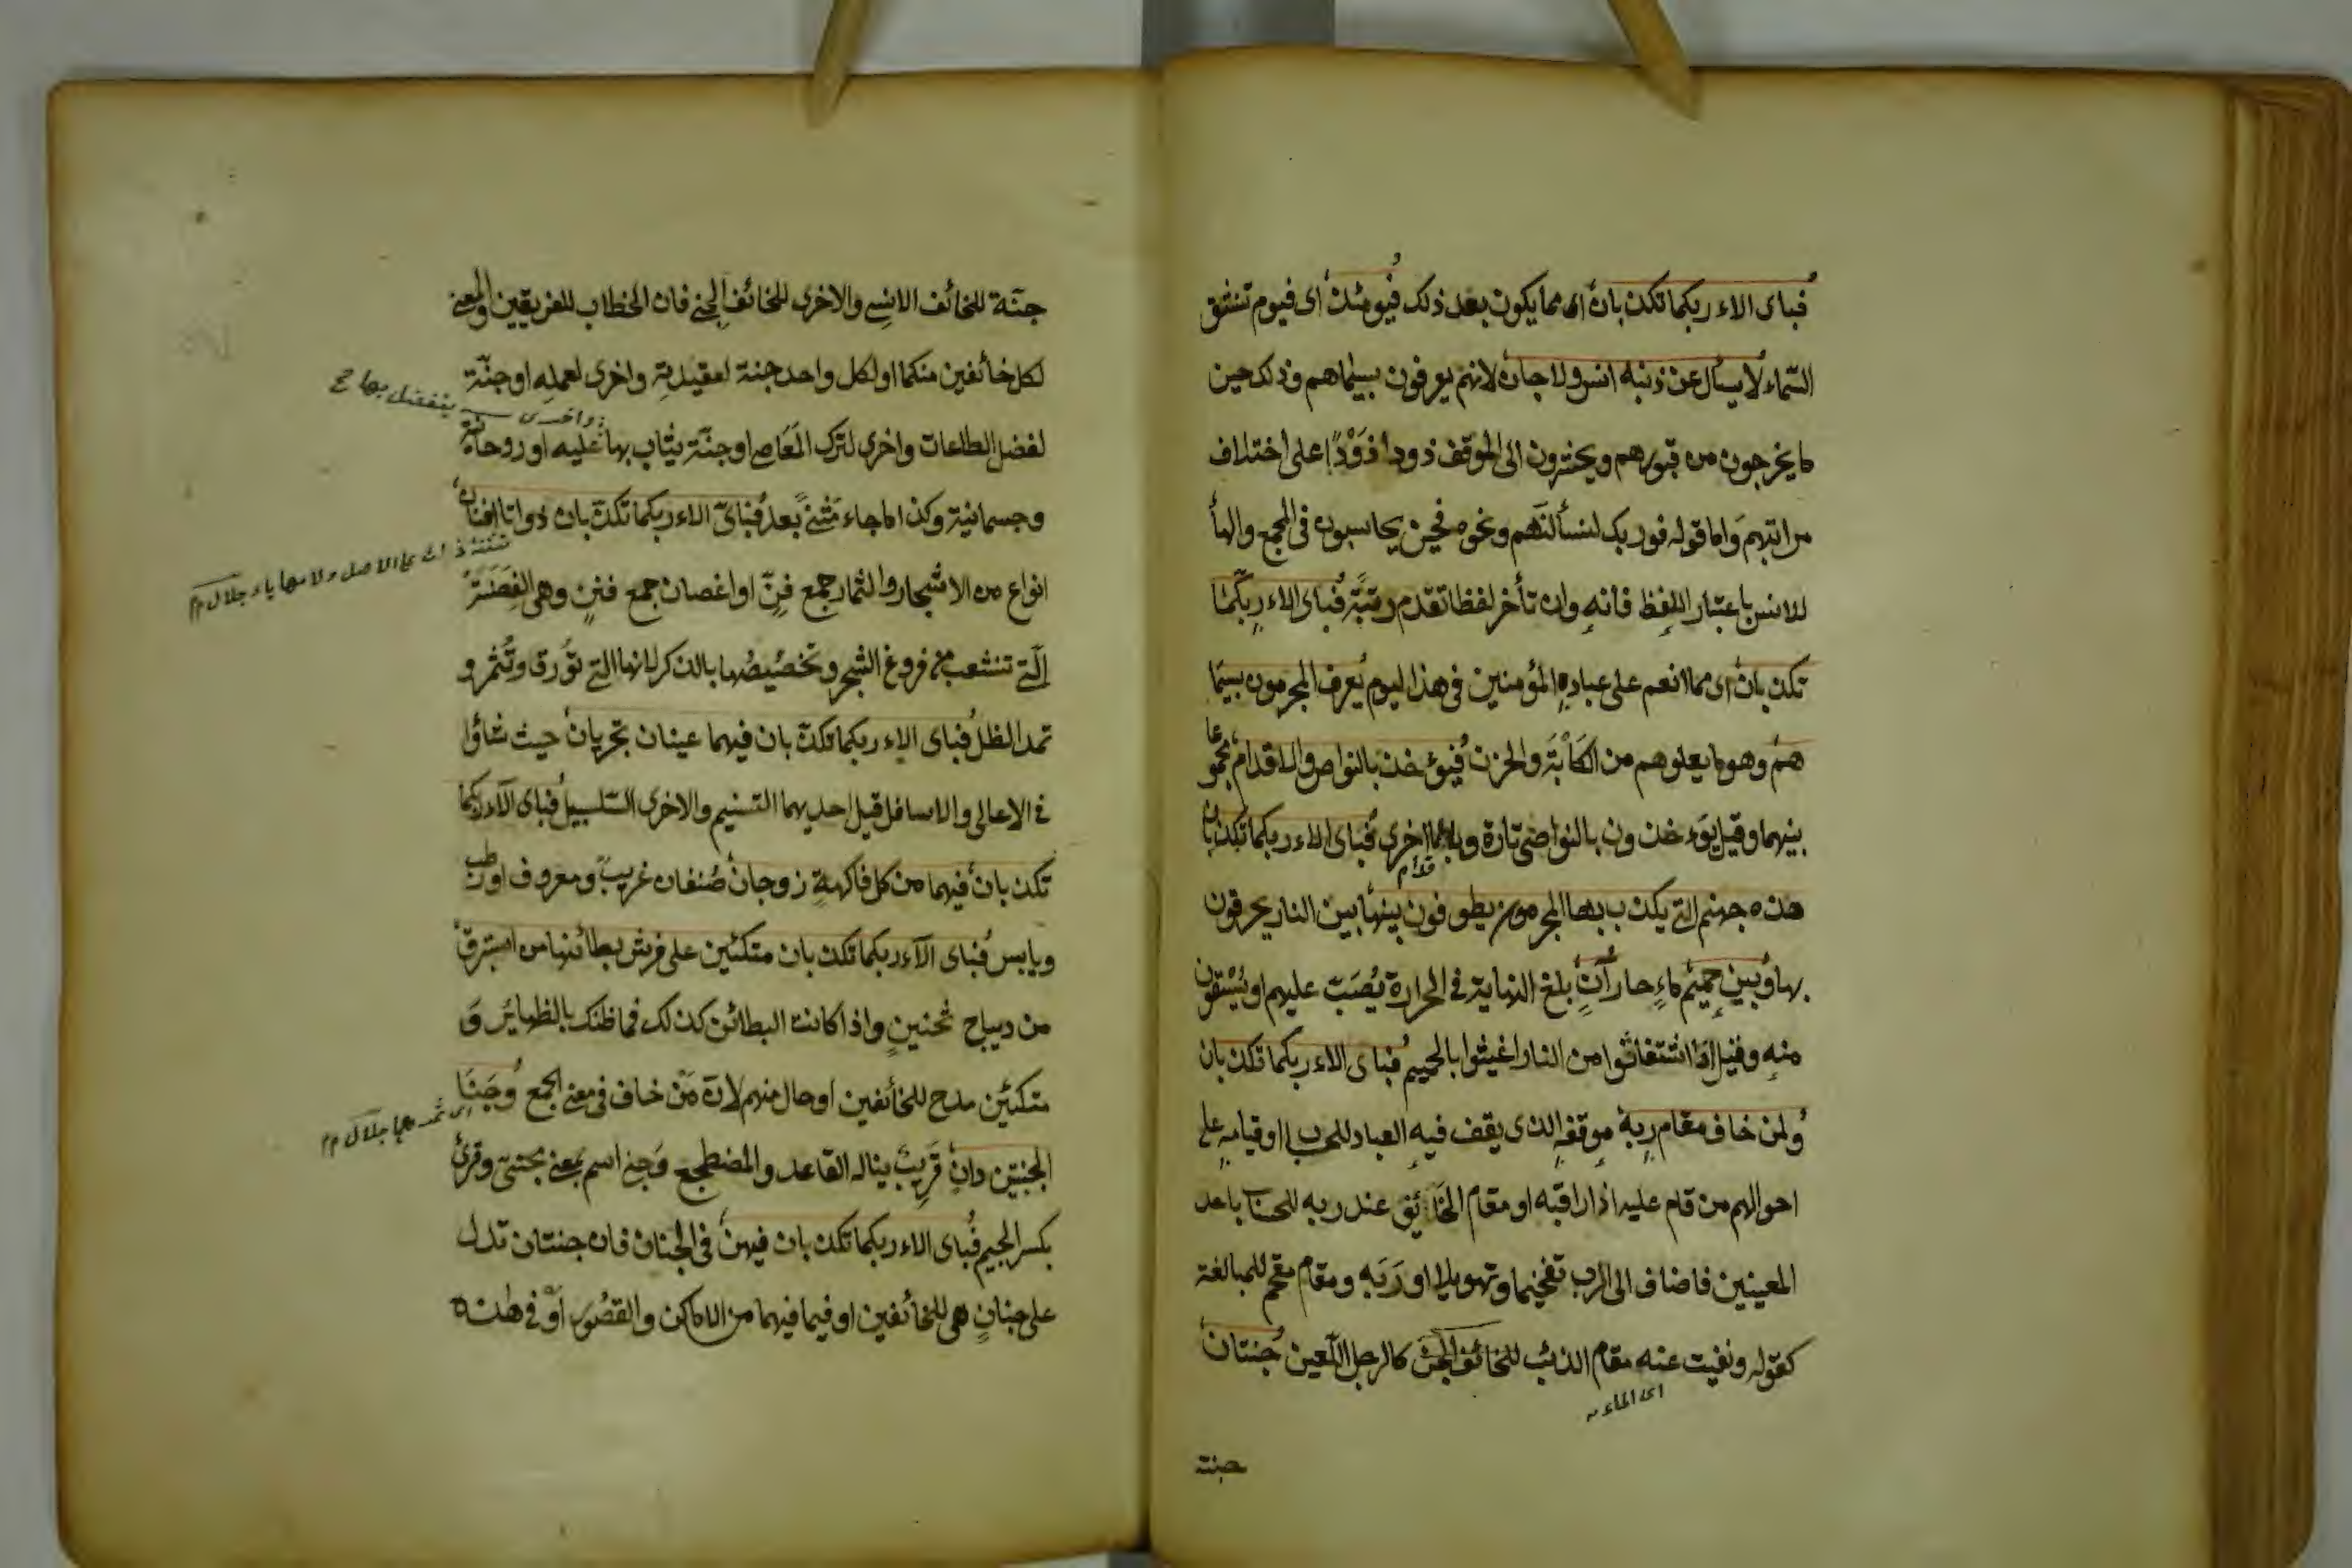 فباى الاء ربكما تكذبان اى مما يكون بعد ذلك فيومئذ اى فيوم تنشق
السماء لا يسأل عن ذنبه انس ولا جان لانهم يعرفون بسيماهم وذلك حين
ما يخرجون من قبورهم ويحشرون الى الموقف ذودا ذَوْدًا على اختلاف
مراتبهم واما قوله فوربك لنسألنهم ونحوه فحين يحاسبون فى المجمع والهأ
للانس باعتبار اللفظ فانه وان تأخر لفظا تقدم رتبة فباى الاء ربكما
تكذبان اى مما انعم على عباده المؤمنين فى هذا اليوم يعرف المجرمون بسيما
هم وهو ما يعلوهم من الكَأْبَة والحزن فيؤخذ بالنواص والاقدام مجموعا
بينهما وقيل يؤءخذون بالنواضى تارة وبالاقدام اخرى فباى الاء ربكما تكذبان
هذه جهنم التى يكذب بها المجرمون يطوفون بينها بين النار يحرقون
بها وبين حميم ماء حار آن بلغ النهاية فى الحرارة يُصَبّ عليهم او يُسْقَون
منه وقيل اذا اشتغاثوا من النار اغيثوا بالحميم فباى الاء ربكما تكذبان
ولمن خاف مقام ربه موقفه الذى يقف فيه العباد للحساب او قيامه على
احوالهم من قام عليه اذا راقبه او مقام الخائق عند ربه للحساب باحد
المعينين فاضاف الى الرب تفخيما وتهويلا او رَبَه ومقام مقحم للمبالغة
كقوله ونفيت عنه مقام الذئب للخائف كالرجل اللعين جنتان
اى الماء
جنة
جنّة للخائف الانسى والاخرى للخائف الجنى فان الخطاب للفريقين والمعنى
لكل خائفين منكما او لكل واحد جنة لعقيدته واخرى لعمله او جنّة
واخرى يتفضل بها صح
لفضل الطاعات واخرى لترك المَعَاصى او جنّة يثاب بها عليه او روحانية
وجسمانية وكذا ما جاء مثنىً بعد فباىّ الاء ربكما تكذّبان ذواتا افنان
تثنية ذات على الاصل ولامها ياء جلال م م
انواع من الاشجار والثمار جمع فنّ او اغصان جمع فننٍ وهى الغِصَنَة
الّتى تنشعب من فروع الشجر وتخصيصُها بالذكر لانها التى تورق وتُثمر و
تمد الظل فباى الاء ربكما تكذّبان فيهما عينان تجريان حيث شاؤا
فى الاعالى والاسافل قيل احديهما التسنيم والاخرى السّلسبيل فباى الآء ربكما
تكذبان فيهما من كل فاكهةٍ زوجان صنفان غريب ومعروف او رطب
ويابس فباى الآء ربكما تكذبان متكئين على فرش بطائنها من استبرق
من ديباج ثخنينٍ واذا كانت البطائن كذلك فما ظنك بالظهاير وَ
متكئين مدح للخائفين او حال منهم لانّ مَنْ خاف فى معنى الجمع وجَنَا
اى ثمرهما جلال م م
الجنتين دانٍ قَرِيبٌ يناله القاعد والمضطجع وَجنى اسم بمعنى مجنىّ وقرئ
بكسر الجيم فباى الاء ربكما تكذبان فيهن فى الجنان فان جنتان تدل
على جنانٍ هى للخائفين او فيما فيهما من الاماكن والقصُور اَوْ فى هذه